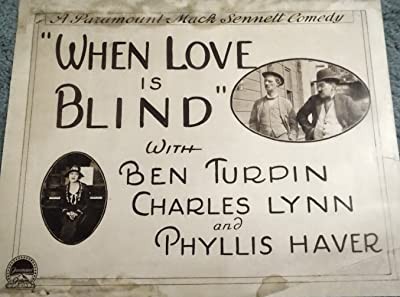 A Paramount Mack Sennett Comedy
"WHEN LOVE
IS
BLIND"
WITH
BEN TURPIN
CHARLES LYNN
and
PHYLLIS HAVER